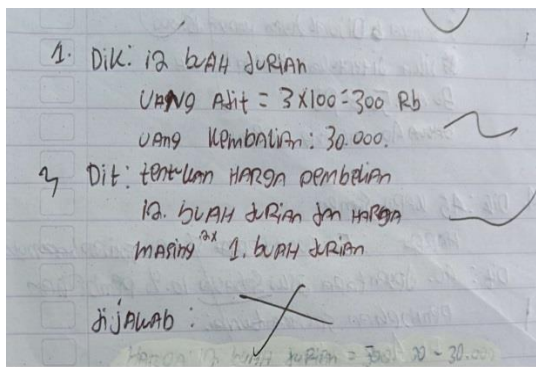 1. Dik: 12 buAH duRiAn
UANG Adit = 3 x 100 = 300 Rb
UAng KembAliAn : 30.000.
2, Dit: tentukan HARgA pembeliAn
12. buAH duRiAn dan HARgA
mAsing 2x 1. buAH duRiAn
dijAwAb :